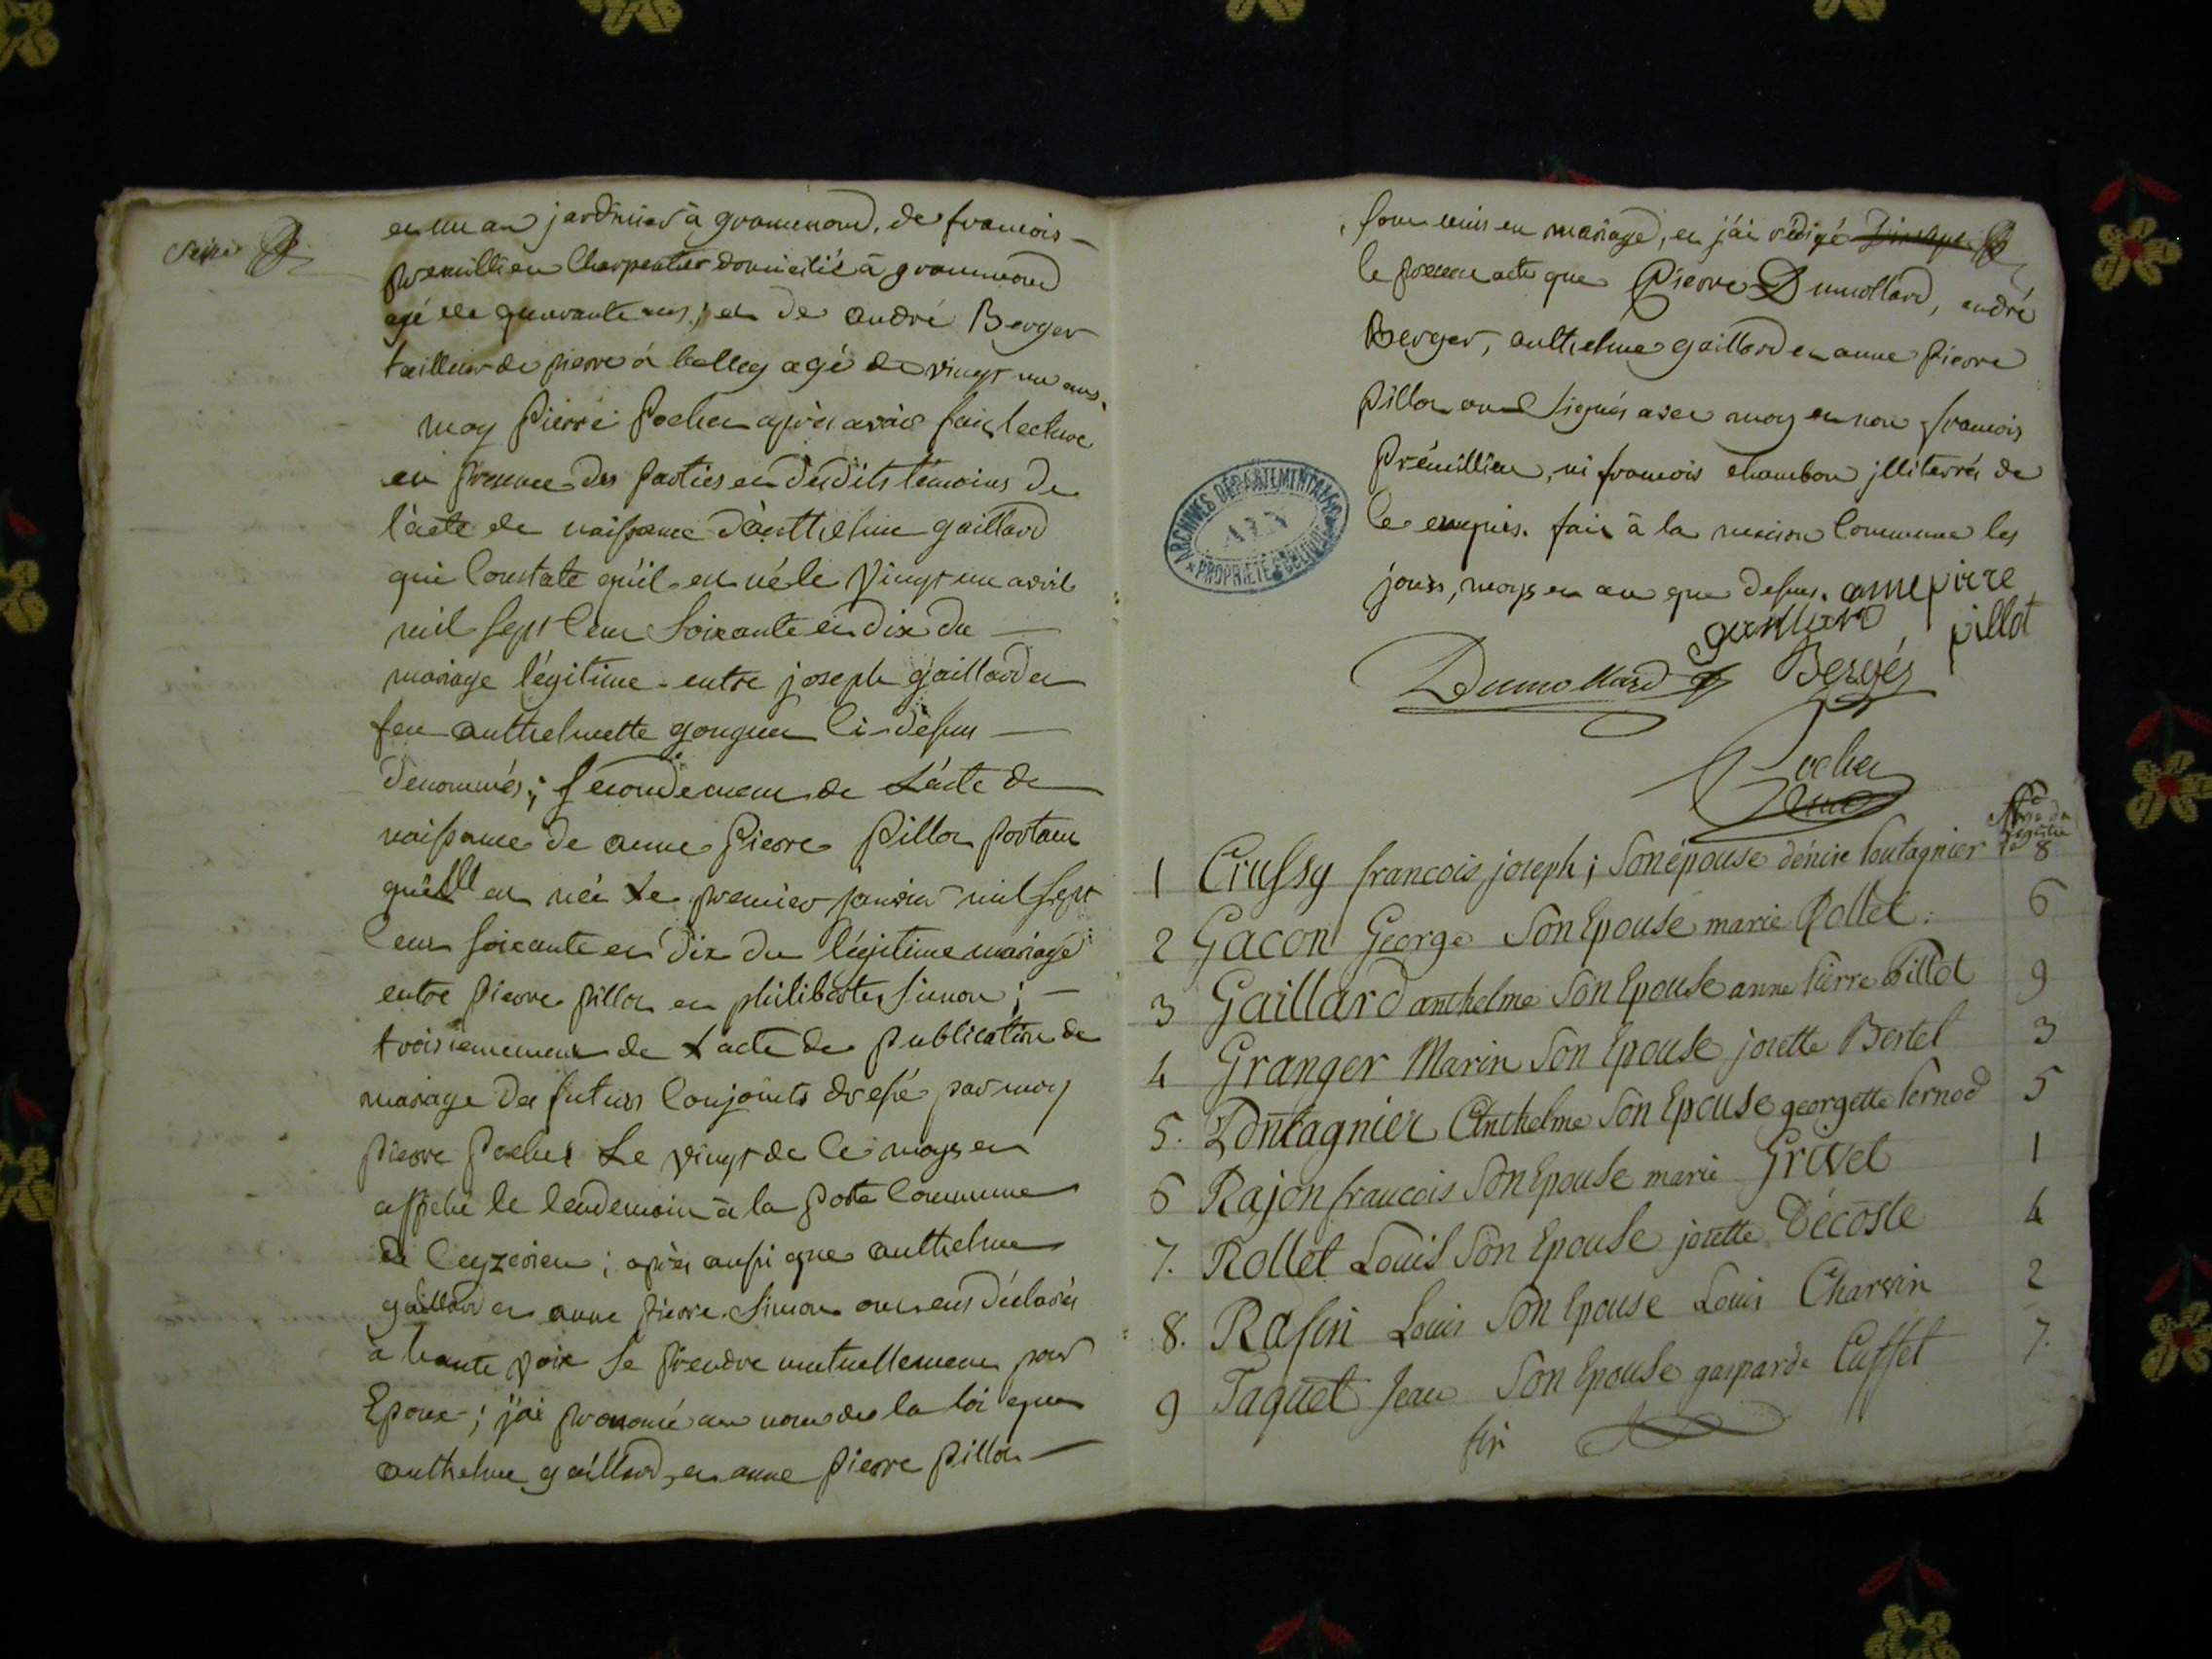 seize
et un an jardinier à grammond, de francois
premillieu Charpentier domicilié à grammond
agé de quarante ans; et de andré Berger
tailleur de pierre à belley agé de vingt un ans.
moy Pierre Pochet après avoir fait lecture
en presence des parties et desdits témoins de
l'acte de naissance d'anthelme gaillard
qui Constate qu'il est né le vingt un avril
mil sept Cent soixante et dix du
mariage légitime entre joseph gaillard et
feu anthelmette gonguet Ci-dessus
denommés; secondement de L'acte de
naissance de anne Pierre Pillot portant
qu'elle est née le premier janvier mil sept
Cent soixante et dix du légitime mariage
entre Pierre Pillot et philiberte Simon;
troisiemement de L'acte de Publication de
mariage des futurs Conjoints dressé par moy
Pierre Pochet Le vingt de Ce moys et
affiché le lendemain à la Porte Commune
de Ceyzerieu; après aussi que anthelme
gaillard et anne Pierre Simon ont eus déclarés
à haute voix se prendre mutuellement pour
Epoux; j'ai prononcé au nom de la loi que
anthelme gaillard, et anne Pierre Pillot
sont unis en mariage, et j'ai rédigé
le present acte que Pierre Dumollard, andré
Berger, anthelme gaillard et anne Pierre
Pillot ont signés avec moy et non francois
Prémillieu, ni francois chambon jllitérrés de
Ce enquis. fait à la maison Commune les
jours, moys et an que dessus. anne pierre
gaillard pillot
Dumollard Bergér
Pochet
ARCHIVES DÉPARTEMENTALES
AIN
PROPRIÉTÉ PUBLIQUE
page du
registre
1 Crussy francois joseph; Son épouse dénise Contagnier 8
2 Gacon George Son Epouse marie Rollet. 6
3 Gaillard anthelme Son Epouse anne Pierre Pillot 9
4 Granger Marin Son Epouse josette Bertet 3
5. Lontagnier Anthelme Son Epouse georgette Pernod 5
6 Rajon francois Son Epouse marie Grivel 1
7. Rollet Louis Son Epouse josette Décoste 4
8. Rasin Louis Son Epouse Louis Charvin 2
9 Taquet Jean Son Epouse gasparde Cuffet 7.
fin